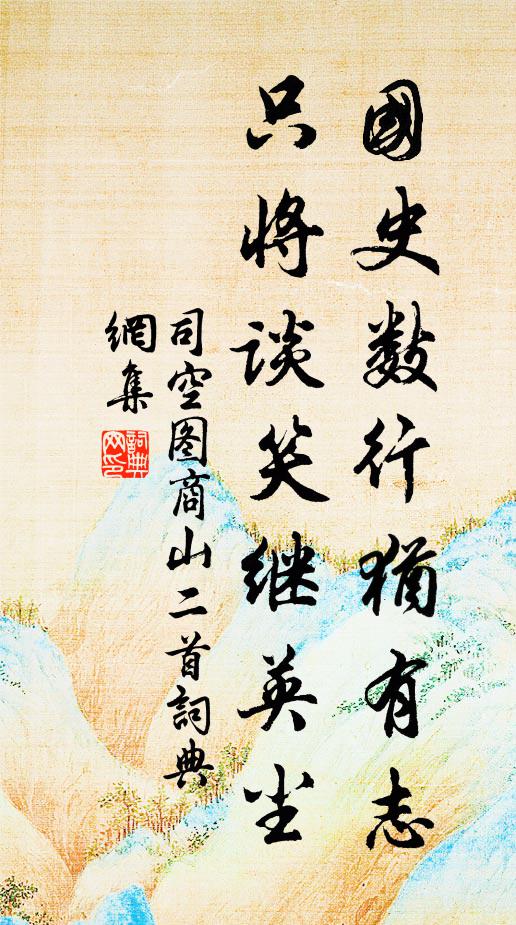 國史數行猶有志
只將談笑继英尘
司空图商山二首詞典
網集
詞典
網印